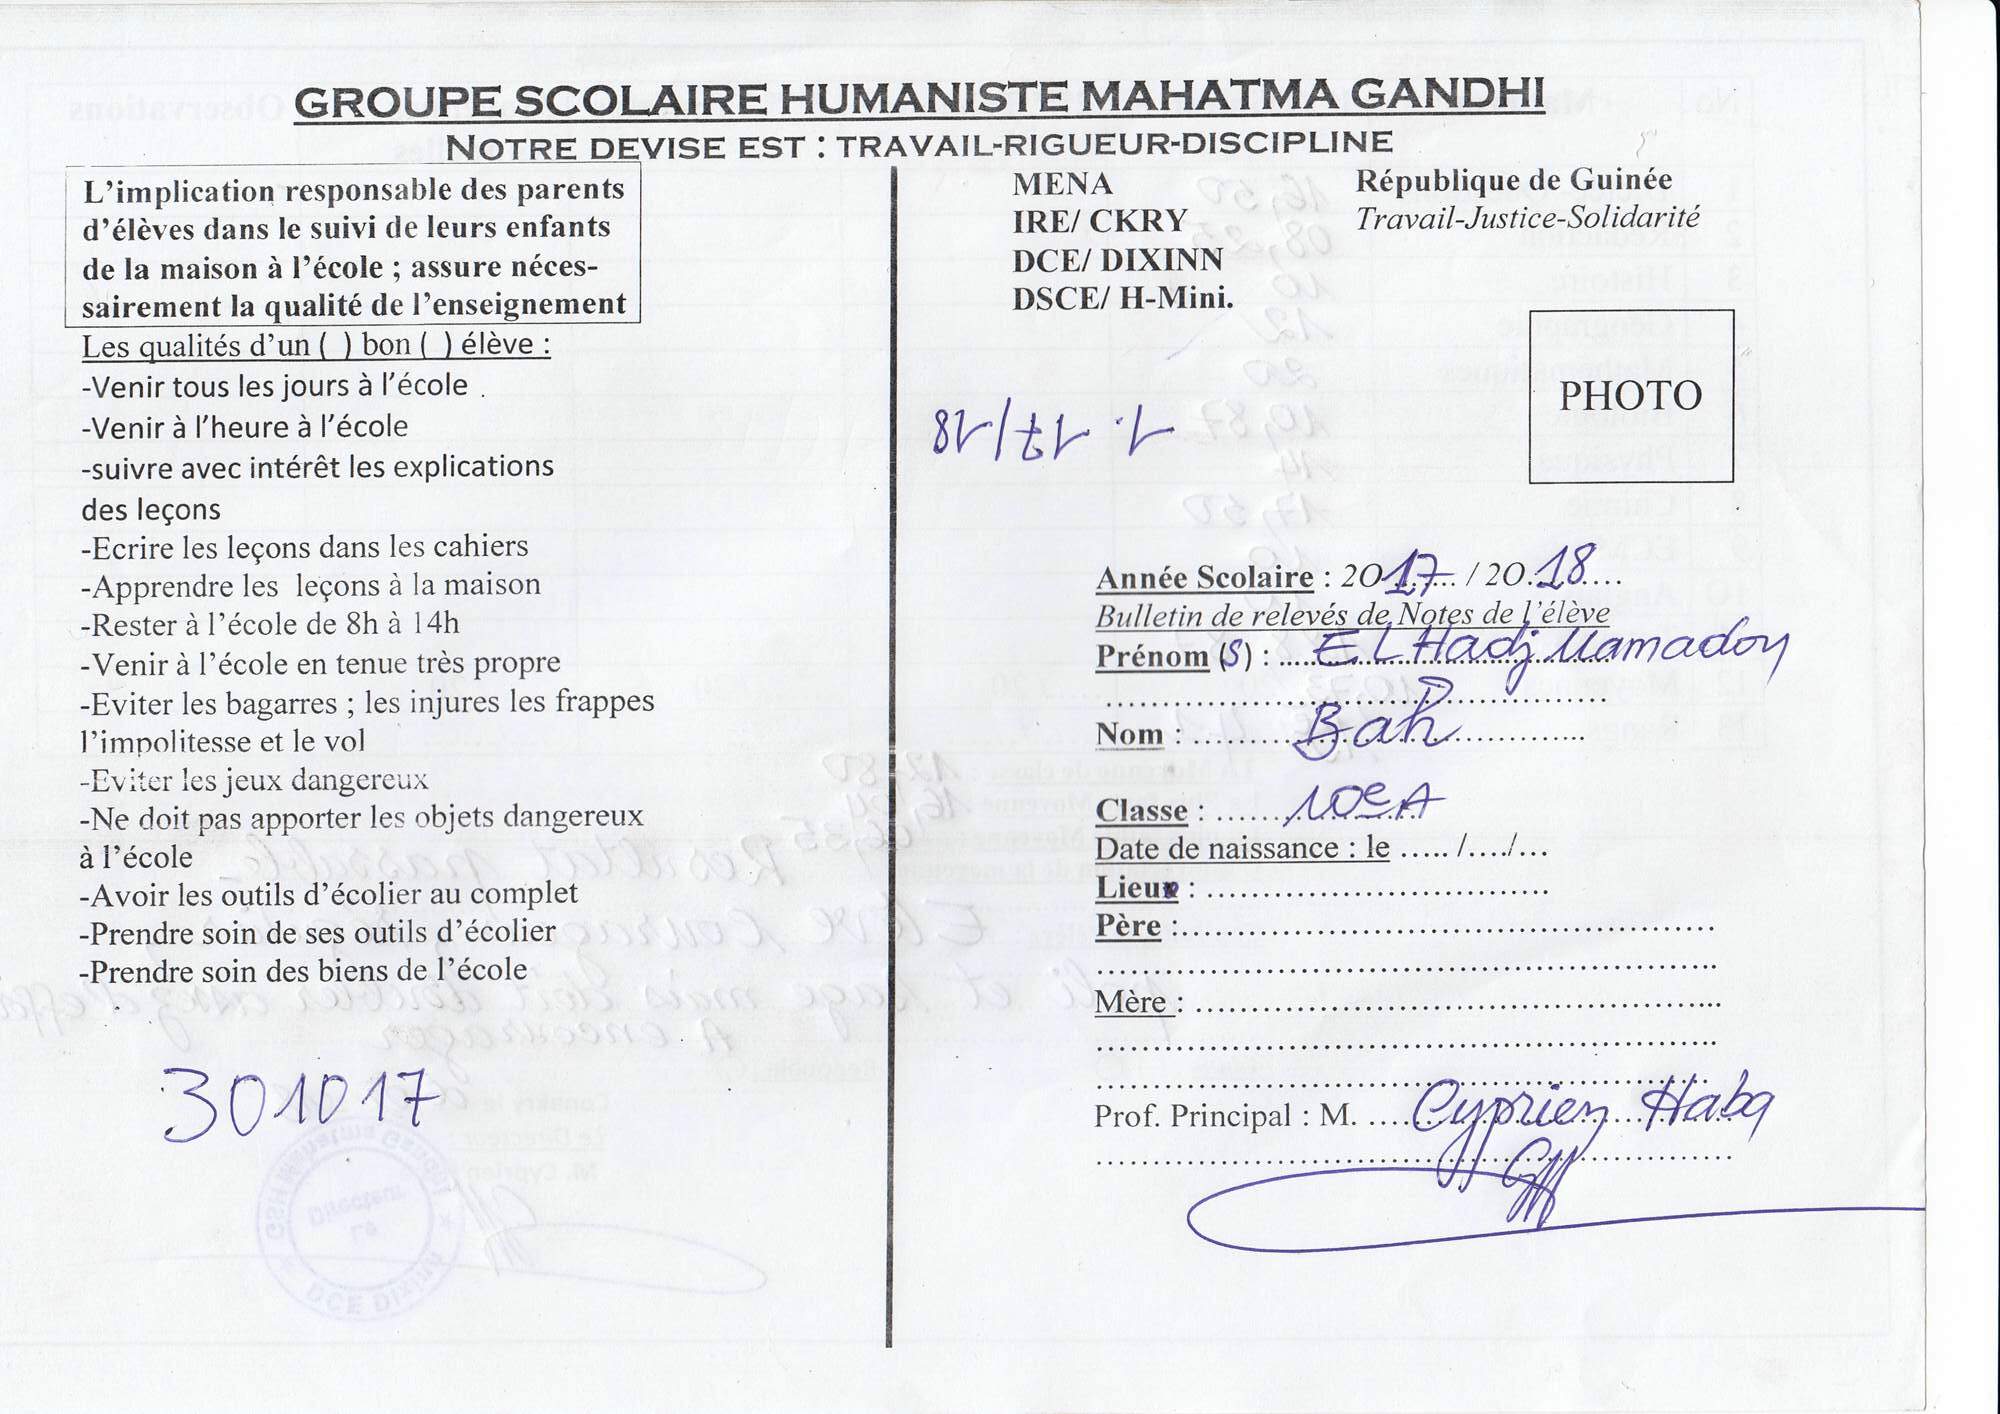 GROUPE SCOLAIRE HUMANISTE MAHATMA GANDHI
NOTRE DEVISE EST : TRAVAIL-RIGUEUR-DISCIPLINE
L'implication responsable des parents
d'élèves dans le suivi de leurs enfants
de la maison à l'école ; assure néces-
sairement la qualité de l'enseignement
Les qualités d'un ( ) bon ( ) élève :
-Venir tous les jours à l'école .
-Venir à l'heure à l'école
-suivre avec intérêt les explications
des leçons
-Ecrire les leçons dans les cahiers
-Apprendre les leçons à la maison
-Rester à l'école de 8h à 14h
-Venir à l'école en tenue très propre
-Eviter les bagarres ; les injures les frappes
l'impolitesse et le vol
-Eviter les jeux dangereux
-Ne doit pas apporter les objets dangereux
à l'école
-Avoir les outils d'écolier au complet
-Prendre soin de ses outils d'écolier
-Prendre soin des biens de l'école
301017
MENA
IRE/ CKRY
DCE/ DIXINN
DSCE/ H-Mini.
République de Guinée
Travail-Justice-Solidarité
PHOTO
1. 17/18
Année Scolaire : 2017 / 2018
Bulletin de relevés de Notes de l'élève
Prénom (s) : EL Hadj Mamadou
Nom : Bah
Classe : 10e A
Date de naissance : le ..... /..../...
Lieu :
Père :
Mère :
Prof. Principal : M. Cyprien Haba